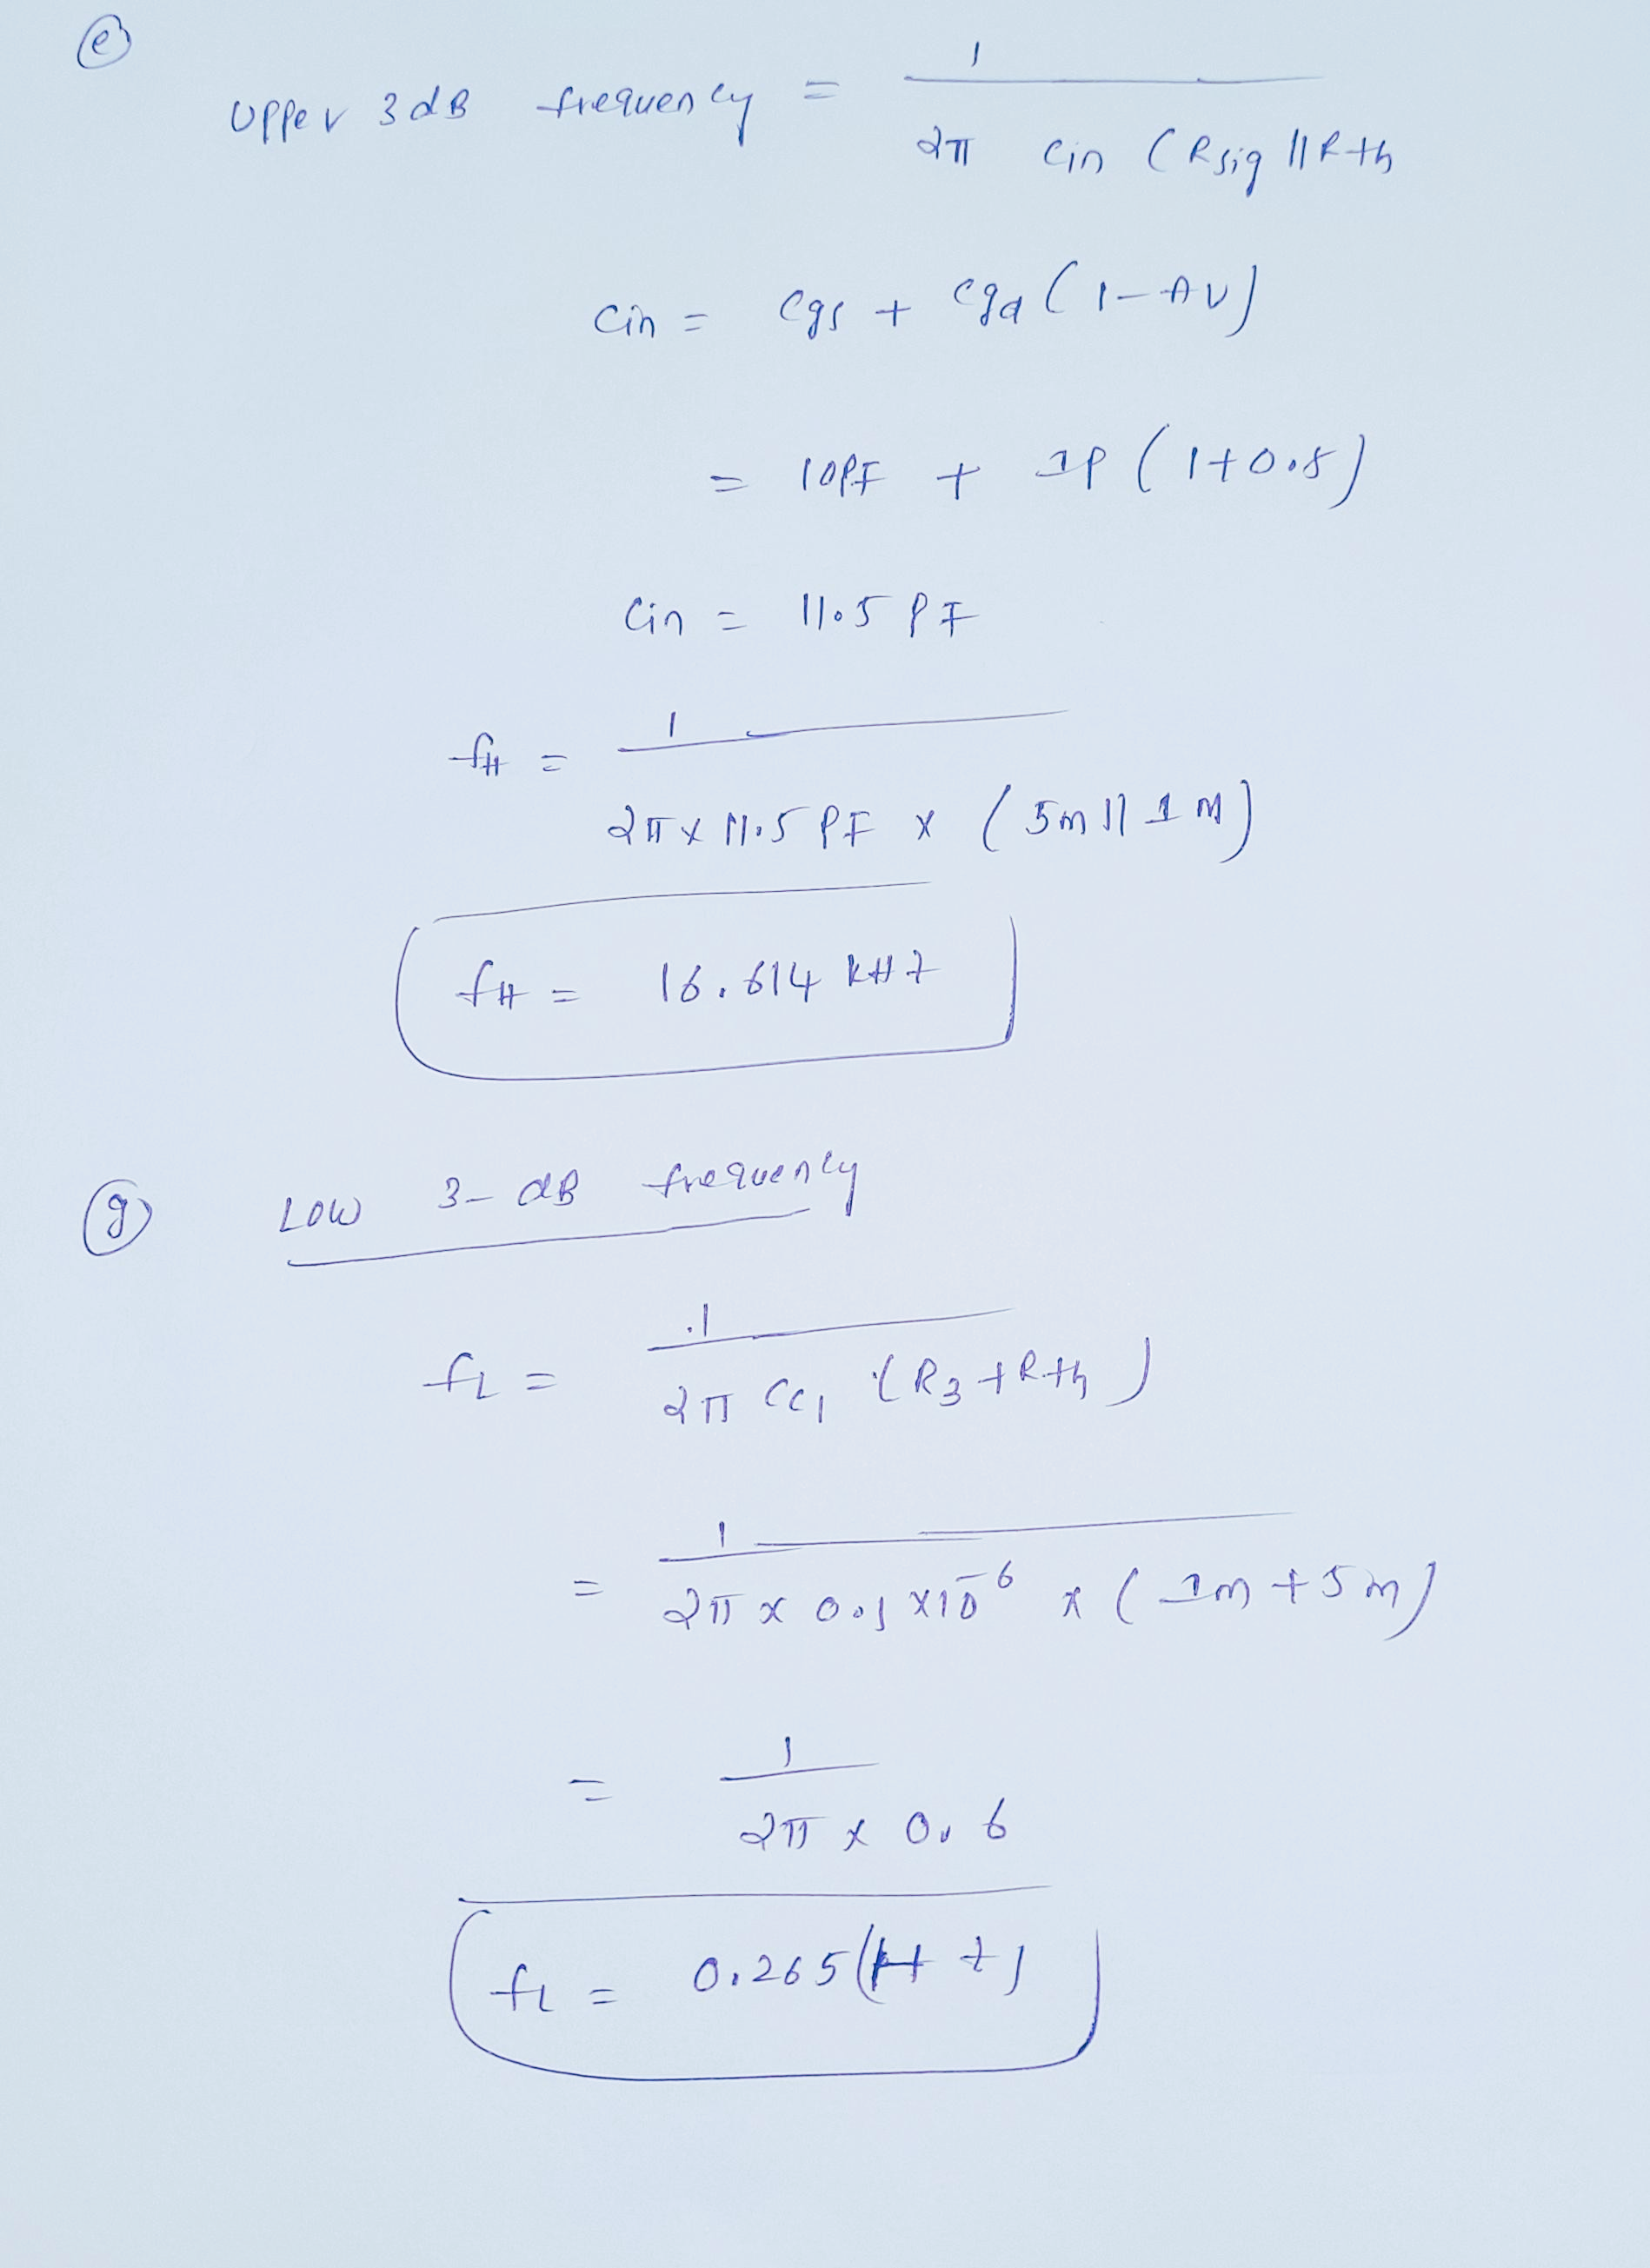 (e)
Upper 3dB frequency = 1 / 2π Cin (Rsig || Rth
Cin = Cgs + Cgd (1 - AV)
= 10PF + 1P (1+0.5)
Cin = 11.5 PF
fH = 1 / 2π x 11.5 PF x (5m || 1m)
fH = 16.614 kHz
(g) Low 3-dB frequency
fL = 1 / 2π CC1 (R3 + Rth)
= 1 / 2π x 0.1 x 10^-6 x (1m + 5m)
= 1 / 2π x 0.6
fL = 0.265 (Hz)